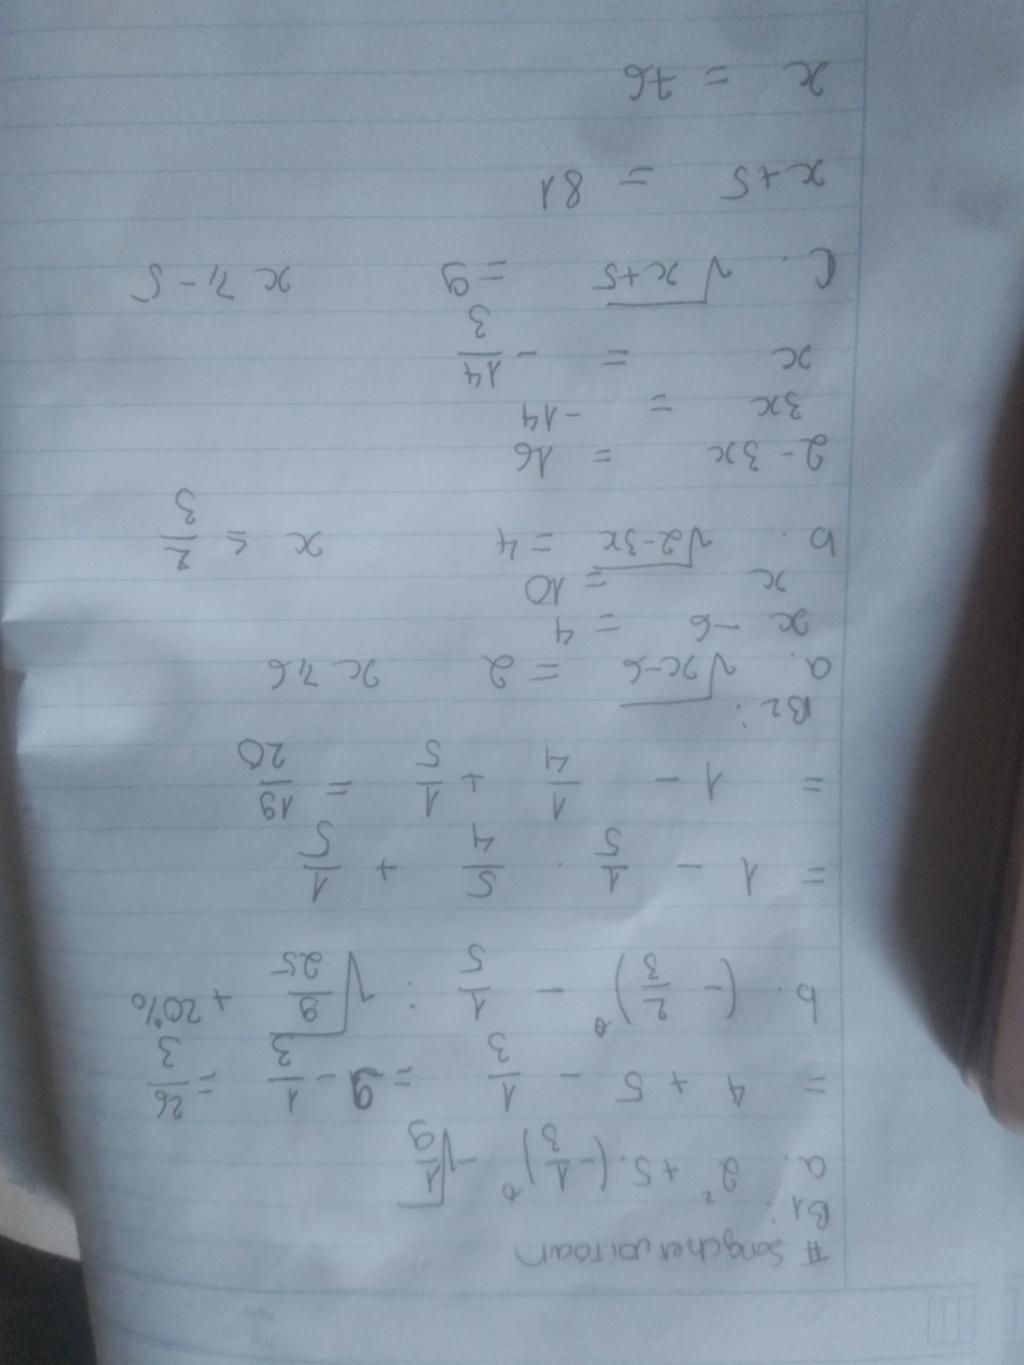 # Songcherwiroan
B1:
a. 2² + 5.(-1/3)⁰ - √(1/9)
= 4 + 5 - 1/3 = 9 - 1/3 = 26/3
b. (-2/3)⁰ - 1/5 : √(9/25) + 20%
= 1 - 1/5 . 5/4 + 1/5
= 1 - 1/4 + 1/5 = 19/20
B2:
a. √(x-6) = 2 x ≥ 6
x - 6 = 4
x = 10
b. √(2-3x) = 4 x ≤ 2/3
2 - 3x = 16
3x = -14
x = -14/3
C. √(x+5) = 9 x ≥ -5
x+5 = 81
x = 76